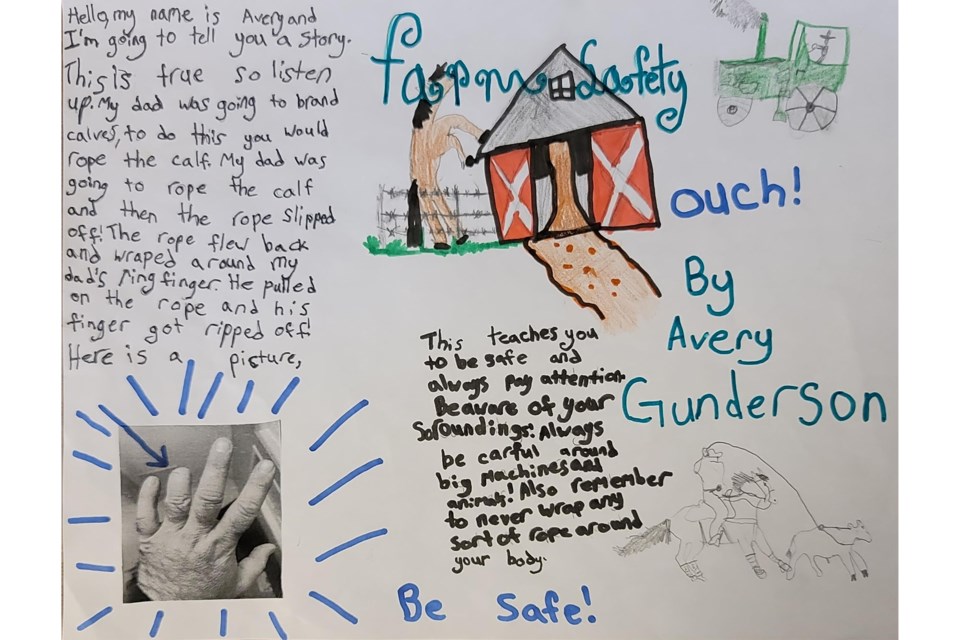 Hello, my name is Avery and
I'm going to tell you a story.
This is true so listen
up. My dad was going to brand
calves, to do this you would
rope the calf. My dad was
going to rope the calf
and then the rope slipped
off! The rope flew back
and wraped around my
dad's ring finger. He pulled
on the rope and his
finger got ripped off!
Here is a picture,
farm Safety
ouch!
By
Avery
Gunderson
This teaches you
to be safe and
always pay attention.
Be aware of your
Soroundings. Always
be carful around
big machines and
animals! Also remember
to never wrap any
sort of rope around
your body.
Be Safe!